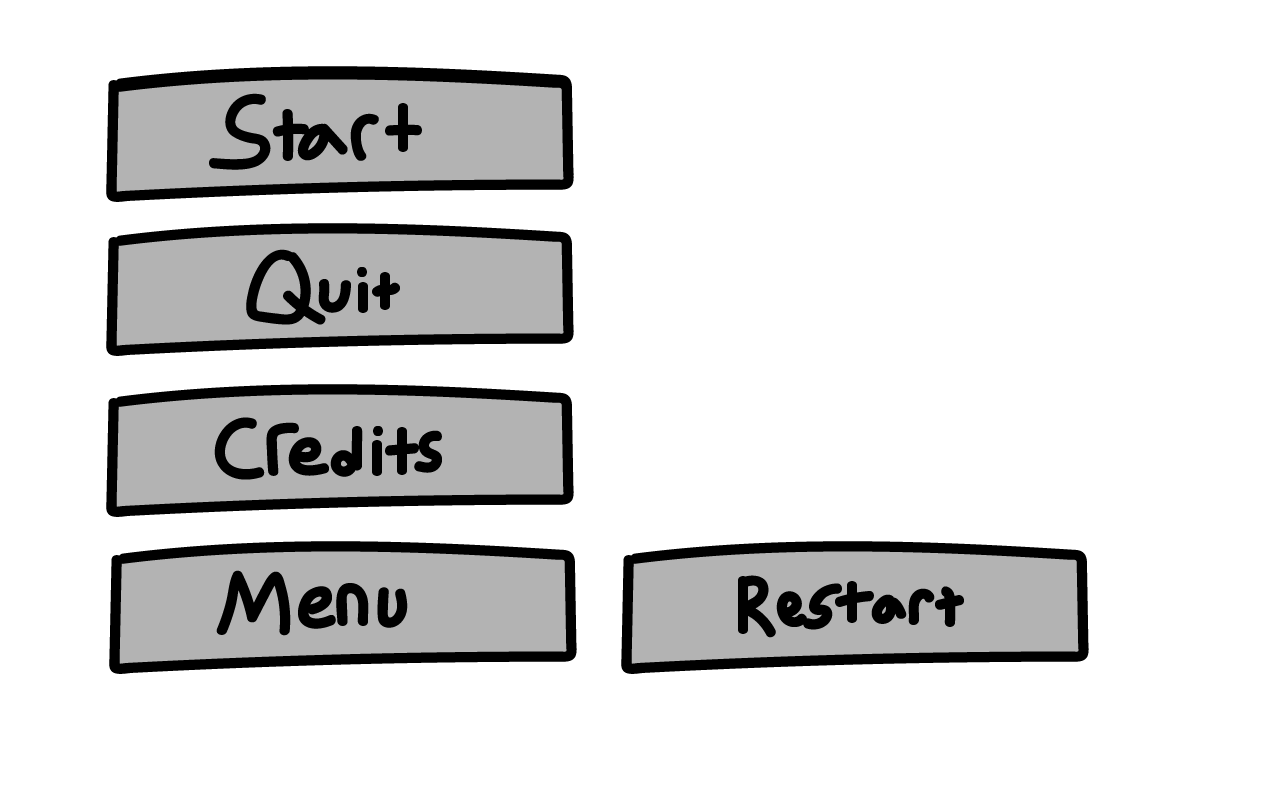 Start
Quit
Credits
Menu
Restart